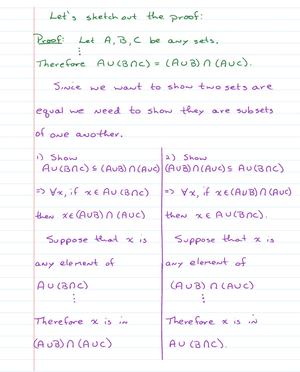 Let's sketch out the proof:
Proof: Let A, B, C be any sets.
⋮
Therefore A∪(B∩C) = (A∪B)∩(A∪C).
Since we want to show two sets are
equal we need to show they are subsets
of one another.
1) Show
A∪(B∩C) ⊆ (A∪B)∩(A∪C)
=> ∀x, if x ∈ A∪(B∩C)
then x∈(A∪B)∩(A∪C)
Suppose that x is
any element of
A∪(B∩C)
⋮
Therefore x is in
(A∪B)∩(A∪C)
2) Show
(A∪B)∩(A∪C) ⊆ A∪(B∩C)
=> ∀x, if x∈(A∪B)∩(A∪C)
then x ∈ A∪(B∩C).
Suppose that x is
any element of
(A∪B)∩(A∪C)
⋮
Therefore x is in
A∪(B∩C).